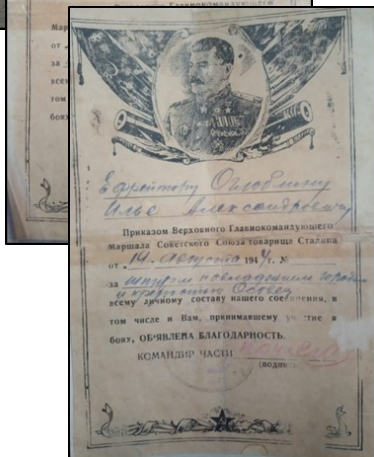 Мар
от
за
всем
том
боях
Ефрейтору Оглоблину
Илье Александровичу
Приказом Верховного Главнокомандующего
Маршала Советского Союза товарища Сталина
от 14 Августа 1944г. №
за штурм и овладением городом
и крепостью Осовец
всему личному составу нашего соединения, в
том числе и Вам, принимавшему участие в
боях, ОБ'ЯВЛЕНА БЛАГОДАРНОСТЬ.
КОМАНДИР ЧАСТИ
(подпись